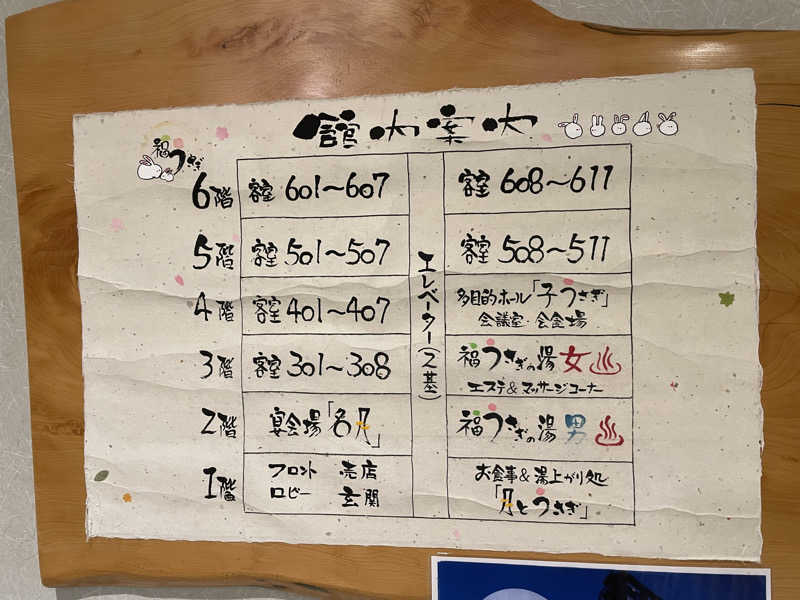 館内案内
福うさぎ
6階 客室 601～607 客室 608～611
5階 客室 501～507 客室 508～511
4階 客室 401～407 多目的ホール「子うさぎ」
会議室・会食場
3階 客室 301～308 福うさぎの湯 女♨
エステ&マッサージコーナー
2階 宴会場「名月」 福うさぎの湯 男♨
1階 フロント 売店 お食事&湯上がり処
ロビー 玄関 「月とうさぎ」
エレベーター(2基)